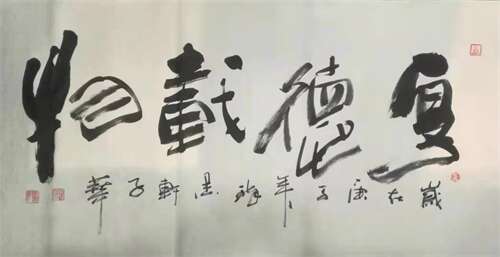 厚德載物
歲在庚子年 墨軒子華